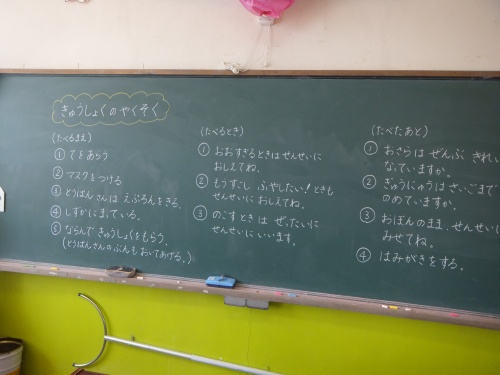 きゅうしょくのやくそく
(たべるまえ)
① てをあらう
② マスクをつける
③ とうばんさんは えぷろんをきる。
④ しずかにまっている。
⑤ ならんで きゅうしょくをもらう。
(とうばんさんのぶんも おいてあげる。)
(たべるとき)
① おおすぎるときは せんせいに
おしえてね。
② もうすこし ふやしたい!ときも
せんせいに おしえてね。
③ のこすときは ぜったいに
せんせいにいいます。
(たべたあと)
① おさらは ぜんぶ きれい
なっていますか。
② ぎゅうにゅうは さいごまで
のめていますか。
③ おぼんのまま、せんせいに
みせてね。
④ はみがきをする。